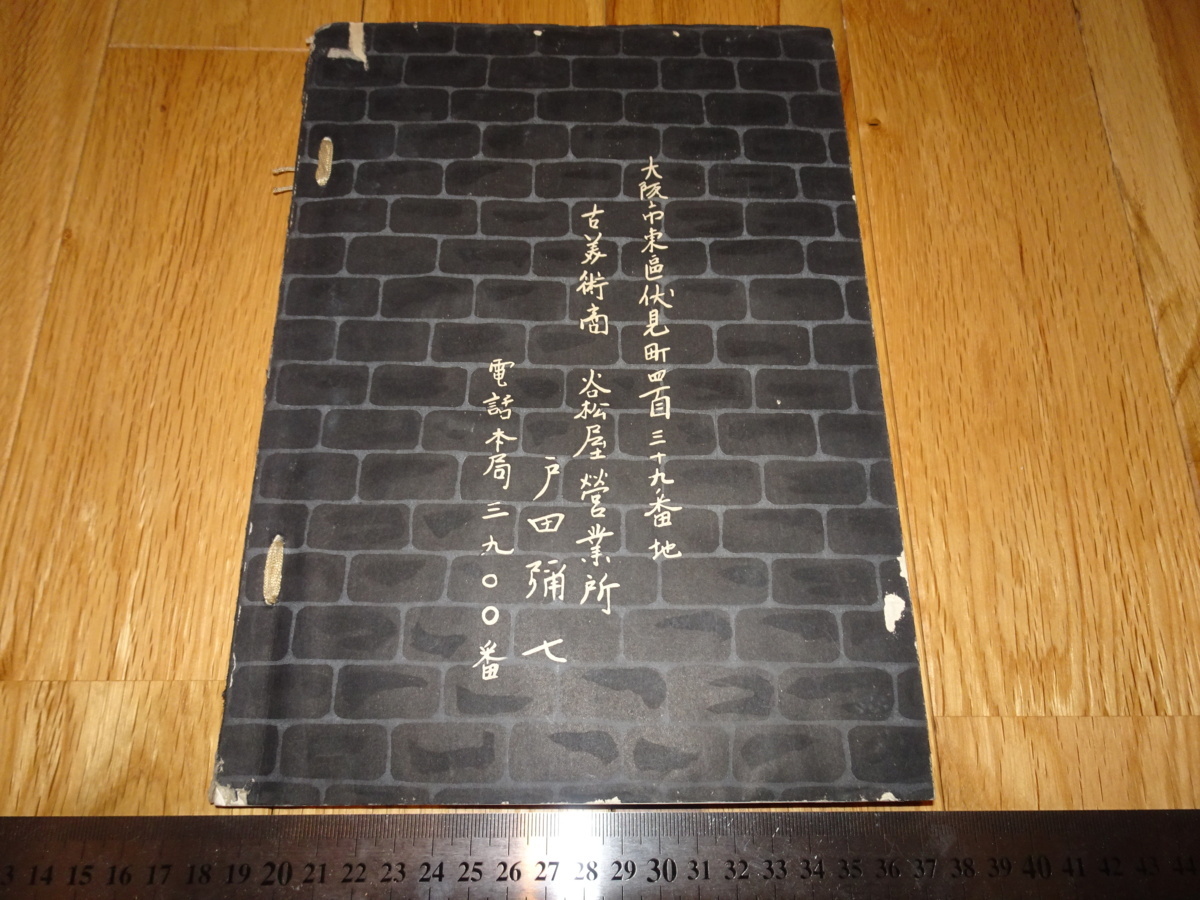 大阪市東區伏見町四百三十九番地
古美術商 谷松屋營業所
戸田彌七
電話本局三九〇〇番
3 14 15 16 17 18 19 20 21 22 23 24 25 26 27 28 29 30 31 32 33 34 35 36 37 38 39 40 41 42 43 44